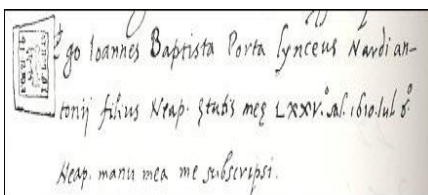 Ego Ioannes Baptista Porta lynceus Nardian-
tonij filius Neap. ętatis meę LXXV.° sal. 1610. Iul. 8.°
Neap. manu mea me subscripsi.